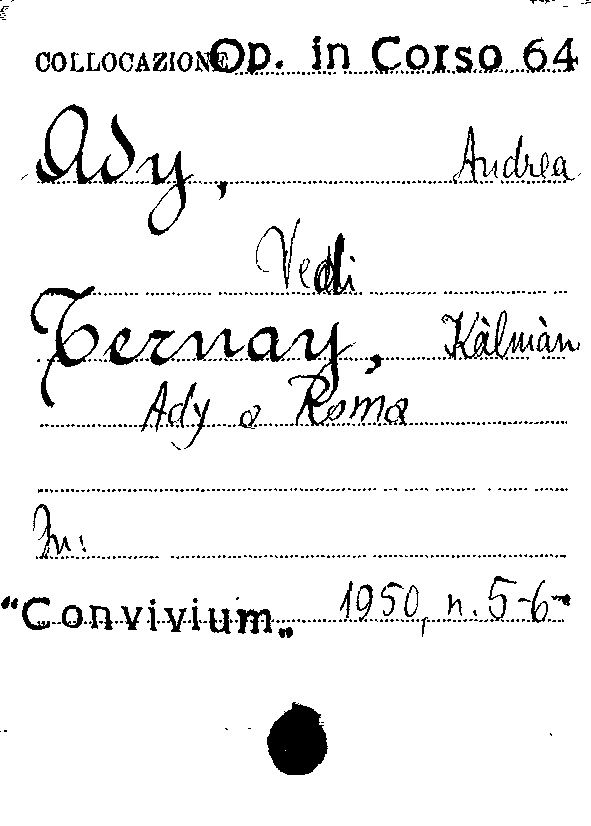 COLLOCAZIONE Op. in Corso 64
Ady, Andrea
Vedi
Ternay, Kàlmàn
Ady a Roma
In:
"Convivium„ 1950, n. 5-6-